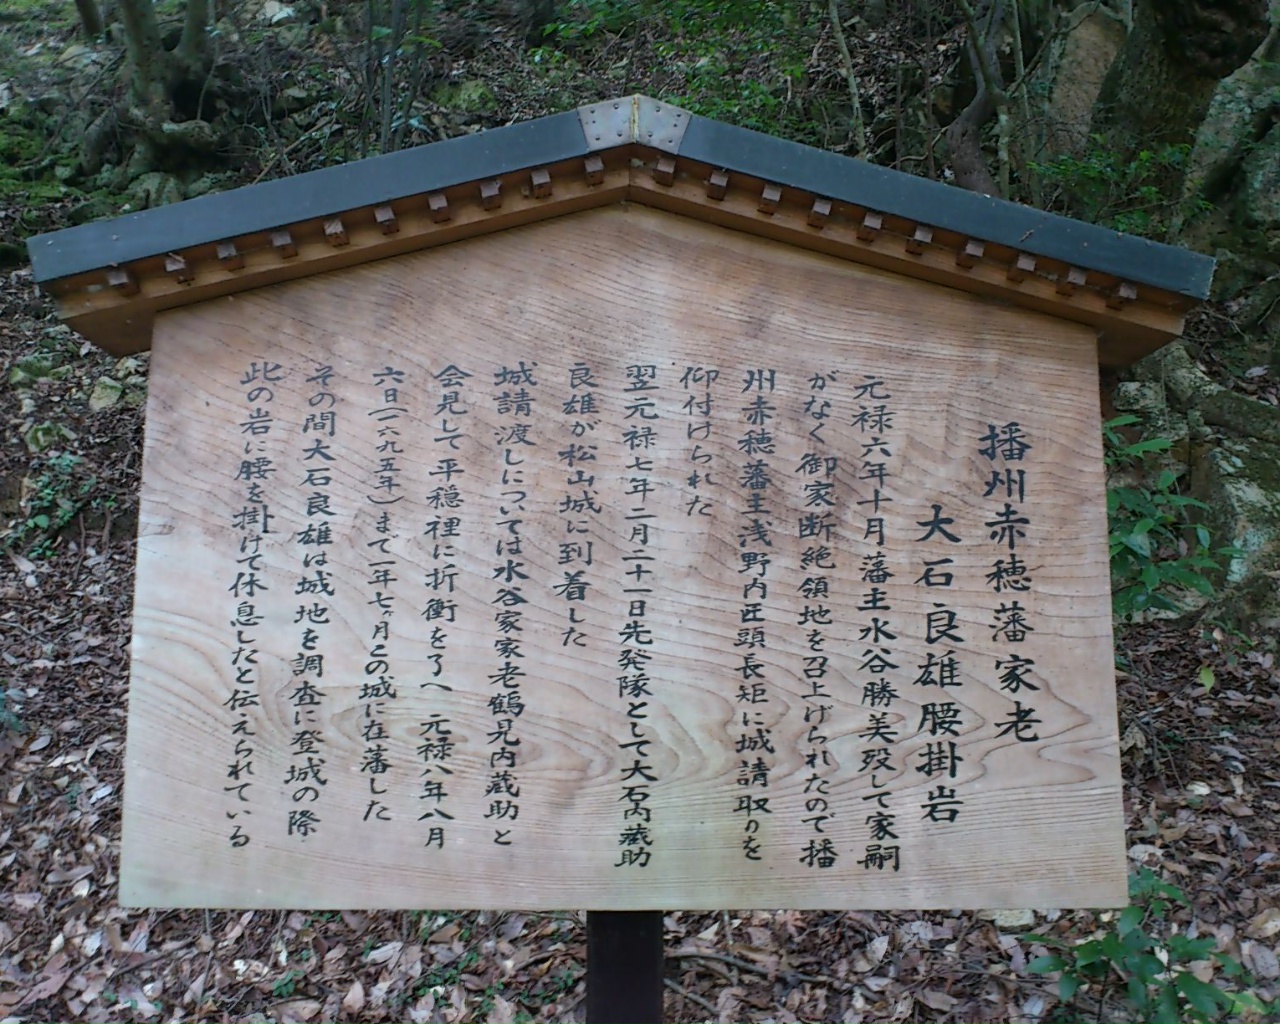 播州赤穂藩家老
大石良雄腰掛岩
元禄六年十月藩主水谷勝美歿して家嗣
がなく御家断絶領地を召上げられたので播
州赤穂藩主浅野内匠頭長矩に城請取りを
仰付けられた
翌元禄七年二月二十一日先発隊として大石内蔵助
良雄が松山城に到着した
城請渡しについては水谷家家老鶴見内蔵助と
会見して平穏裡に折衝を了へ 元禄八年八月
六日(一六九五年)まで一年七ヶ月この城に在藩した
その間大石良雄は城地を調査に登城の際
此の岩に腰を掛けて休息したと伝えられている